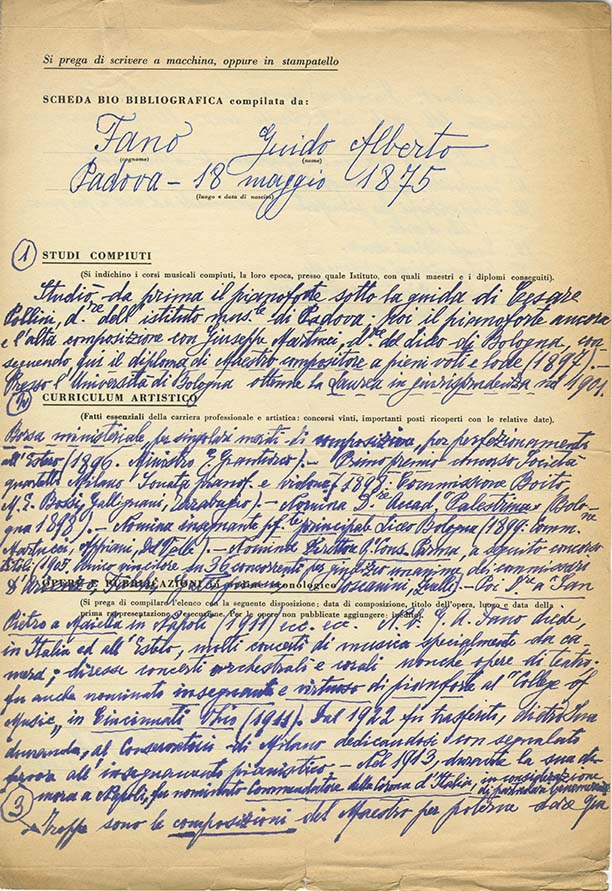 Si prega di scrivere a macchina, oppure in stampatello
SCHEDA BIO BIBLIOGRAFICA compilata da:
Fano Guido Alberto
(cognome) (nome)
Padova - 18 maggio 1875
(luogo e data di nascita)
1 STUDI COMPIUTI
(Si indichino i corsi musicali compiuti, la loro epoca, presso quale Istituto, con quali maestri e i diplomi conseguiti).
Studiò da prima il pianoforte sotto la guida di Cesare
Pollini, d.re dell'istituto mus.le di Padova; poi il pianoforte ancora
e l'alta composizione con Giuseppe Martucci, d.re del Liceo di Bologna, con
seguendo qui il diploma di Maestro compositore a pieni voti e lode (1897).-
Presso l'Università di Bologna ottenne la Laurea in giurisprudenza nel 1901.
2) CURRICULUM ARTISTICO
(Fatti essenziali della carriera professionale e artistica: concorsi vinti, importanti posti ricoperti con le relative date).
Borsa ministeriale per singolari meriti di composizione, per perfezionamento
all'Estero (1896. Ministro E. Gianturco).- Primo premio concorso Società
quartetto Milano Sonata pianof. e violonc. (1898. Commissione Boito,
M. E. Bossi, Gallignani, Terrabugio).- Nomina D.re Accad.a "Palestrina" Bolo-
gna 1898).- Nomina insegnante pf.te principale Liceo Bologna (1899. Comm.ne
Martucci, Del Valle).- Nomina Direttore R.o Cons. Parma, a seguito concorso
titoli (1905. Unico vincitore su 36 concorrenti per giudizio unanime dei commissari
OPERE E PUBBLICAZIONI in ordine cronologico Toscanini, Zuelli).- Poi D.re a San
(Si prega di compilare l'elenco con la seguente disposizione: data di composizione, titolo dell'opera, luogo e data della
prima rappresentazione o esecuzione. Per le opere non pubblicate aggiungere: inedito).
Pietro a Majella in Napoli (1911 ecc. ecc. G. A. Fano diede
in Italia ed all'Estero, molti concerti di musica specialmente da ca
mera; diresse concerti orchestrali e corali nonchè opere di teatro.
Fu anche nominato insegnante e virtuoso di pianoforte al "College of
Music" in Cincinnati Ohio (1911). Dal 1922 fu trasferito, dietro sua
domanda, al Conservatorio di Milano dedicandosi con segnalato
all'insegnamento pianistico - Nel 1913, durante la sua di
mora a Napoli, fu nominato Commendatore della Corona d'Italia, in considerazione
di particolari benemerenze
3 Troppe sono le composizioni del Maestro per poterne dare qui